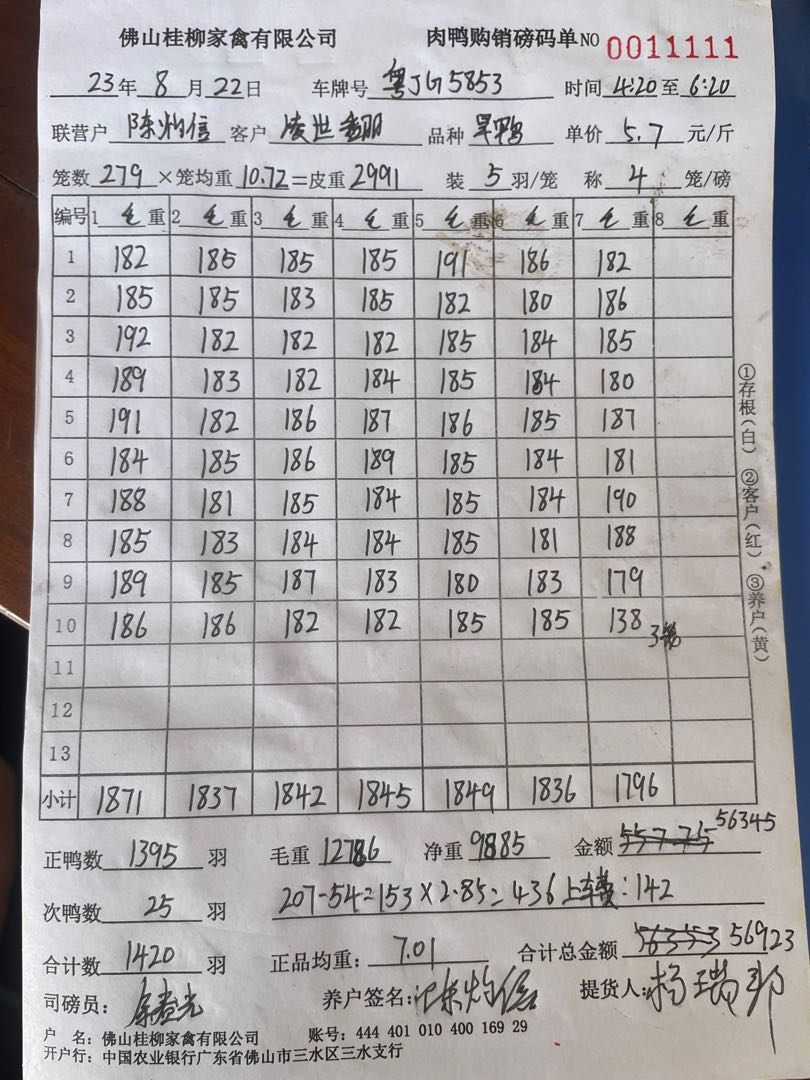 佛山桂柳家禽有限公司 肉鸭购销磅码单NO 0011111
23年 8月 22日 车牌号 粤JG5853 时间 4:20至 6:20
联营户 陈灼信 客户 凌世 品种 旱鸭 单价 5.7 元/斤
笼数 279 ×笼均重 10.72 =皮重 2991 装 5 羽/笼 称 4 笼/磅
编号 1 毛 重 2 毛 重 3 毛 重 4 毛 重 5 毛 重 6 毛 重 7 毛 重 8 毛 重
1 182 185 185 185 191 186 182
2 185 185 183 185 182 180 186
3 192 182 182 182 185 184 185
4 189 183 182 184 185 184 180
5 191 182 186 187 186 185 187
6 184 185 186 189 185 184 181
7 188 181 185 184 185 184 190
8 185 183 184 184 185 181 188
9 189 185 187 183 180 183 179
10 186 186 182 182 185 185 138 3笼
11
12
13
小计 1871 1837 1842 1845 1849 1836 1796
正鸭数 1395 羽 毛重 12786 净重 9885 金额 55775 56345
次鸭数 25 羽 207-54=153×2.85=436 上车费:142
合计数 1420 羽 正品均重: 7.01 合计总金额 56353 56923
司磅员: 养户签名: 陈灼信 提货人: 杨瑞邦
户 名: 佛山桂柳家禽有限公司 账号: 444 401 010 400 169 29
开户行: 中国农业银行广东省佛山市三水区三水支行
①存根(白) ②客户(红) ③养户(黄)